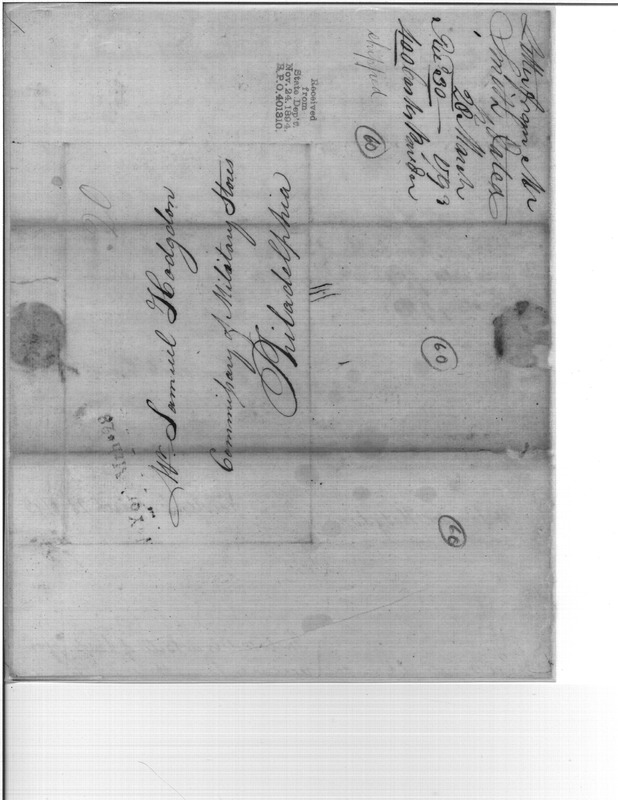 Letter from Mr
Smith, Dated
28 March
Recd 30
400 Casks Powder
shipped
60
Received
from
State Dep't.
Nov. 24, 1894.
R.P.O. 401310.
Mr. Samuel Hodgdon
Commissary of Military Stores
Philadelphia
60
60